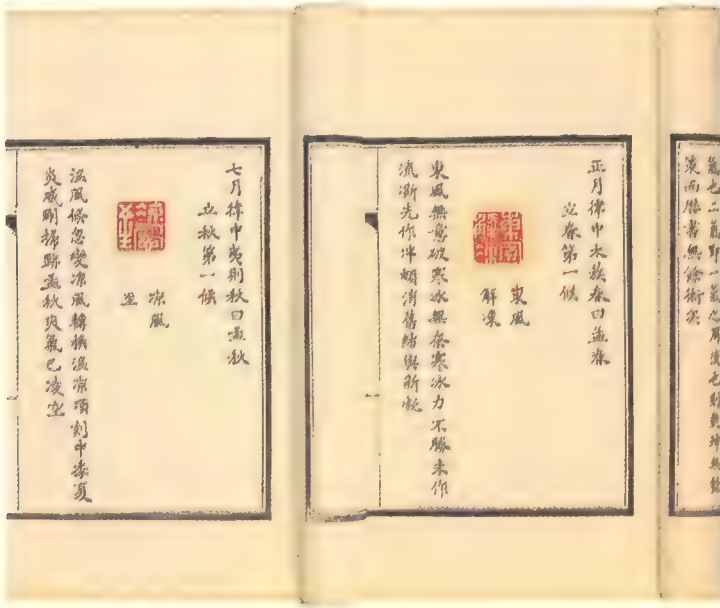 氣也二氣即一氣也周流也則乾坤無餘
而應書無餘術矣
正月律中太蔟春曰孟春
立春第一候
東風
解凍
東風無意破寒冰無奈寒冰力不勝未作
流澌先作泮頓消舊結與新凝
七月律中夷則秋曰孟秋
立秋第一候
涼風
至
温風倐忽變涼風轉換温涼頃刻中溽夏
炎威剛掃跡孟秋爽氣已凌空